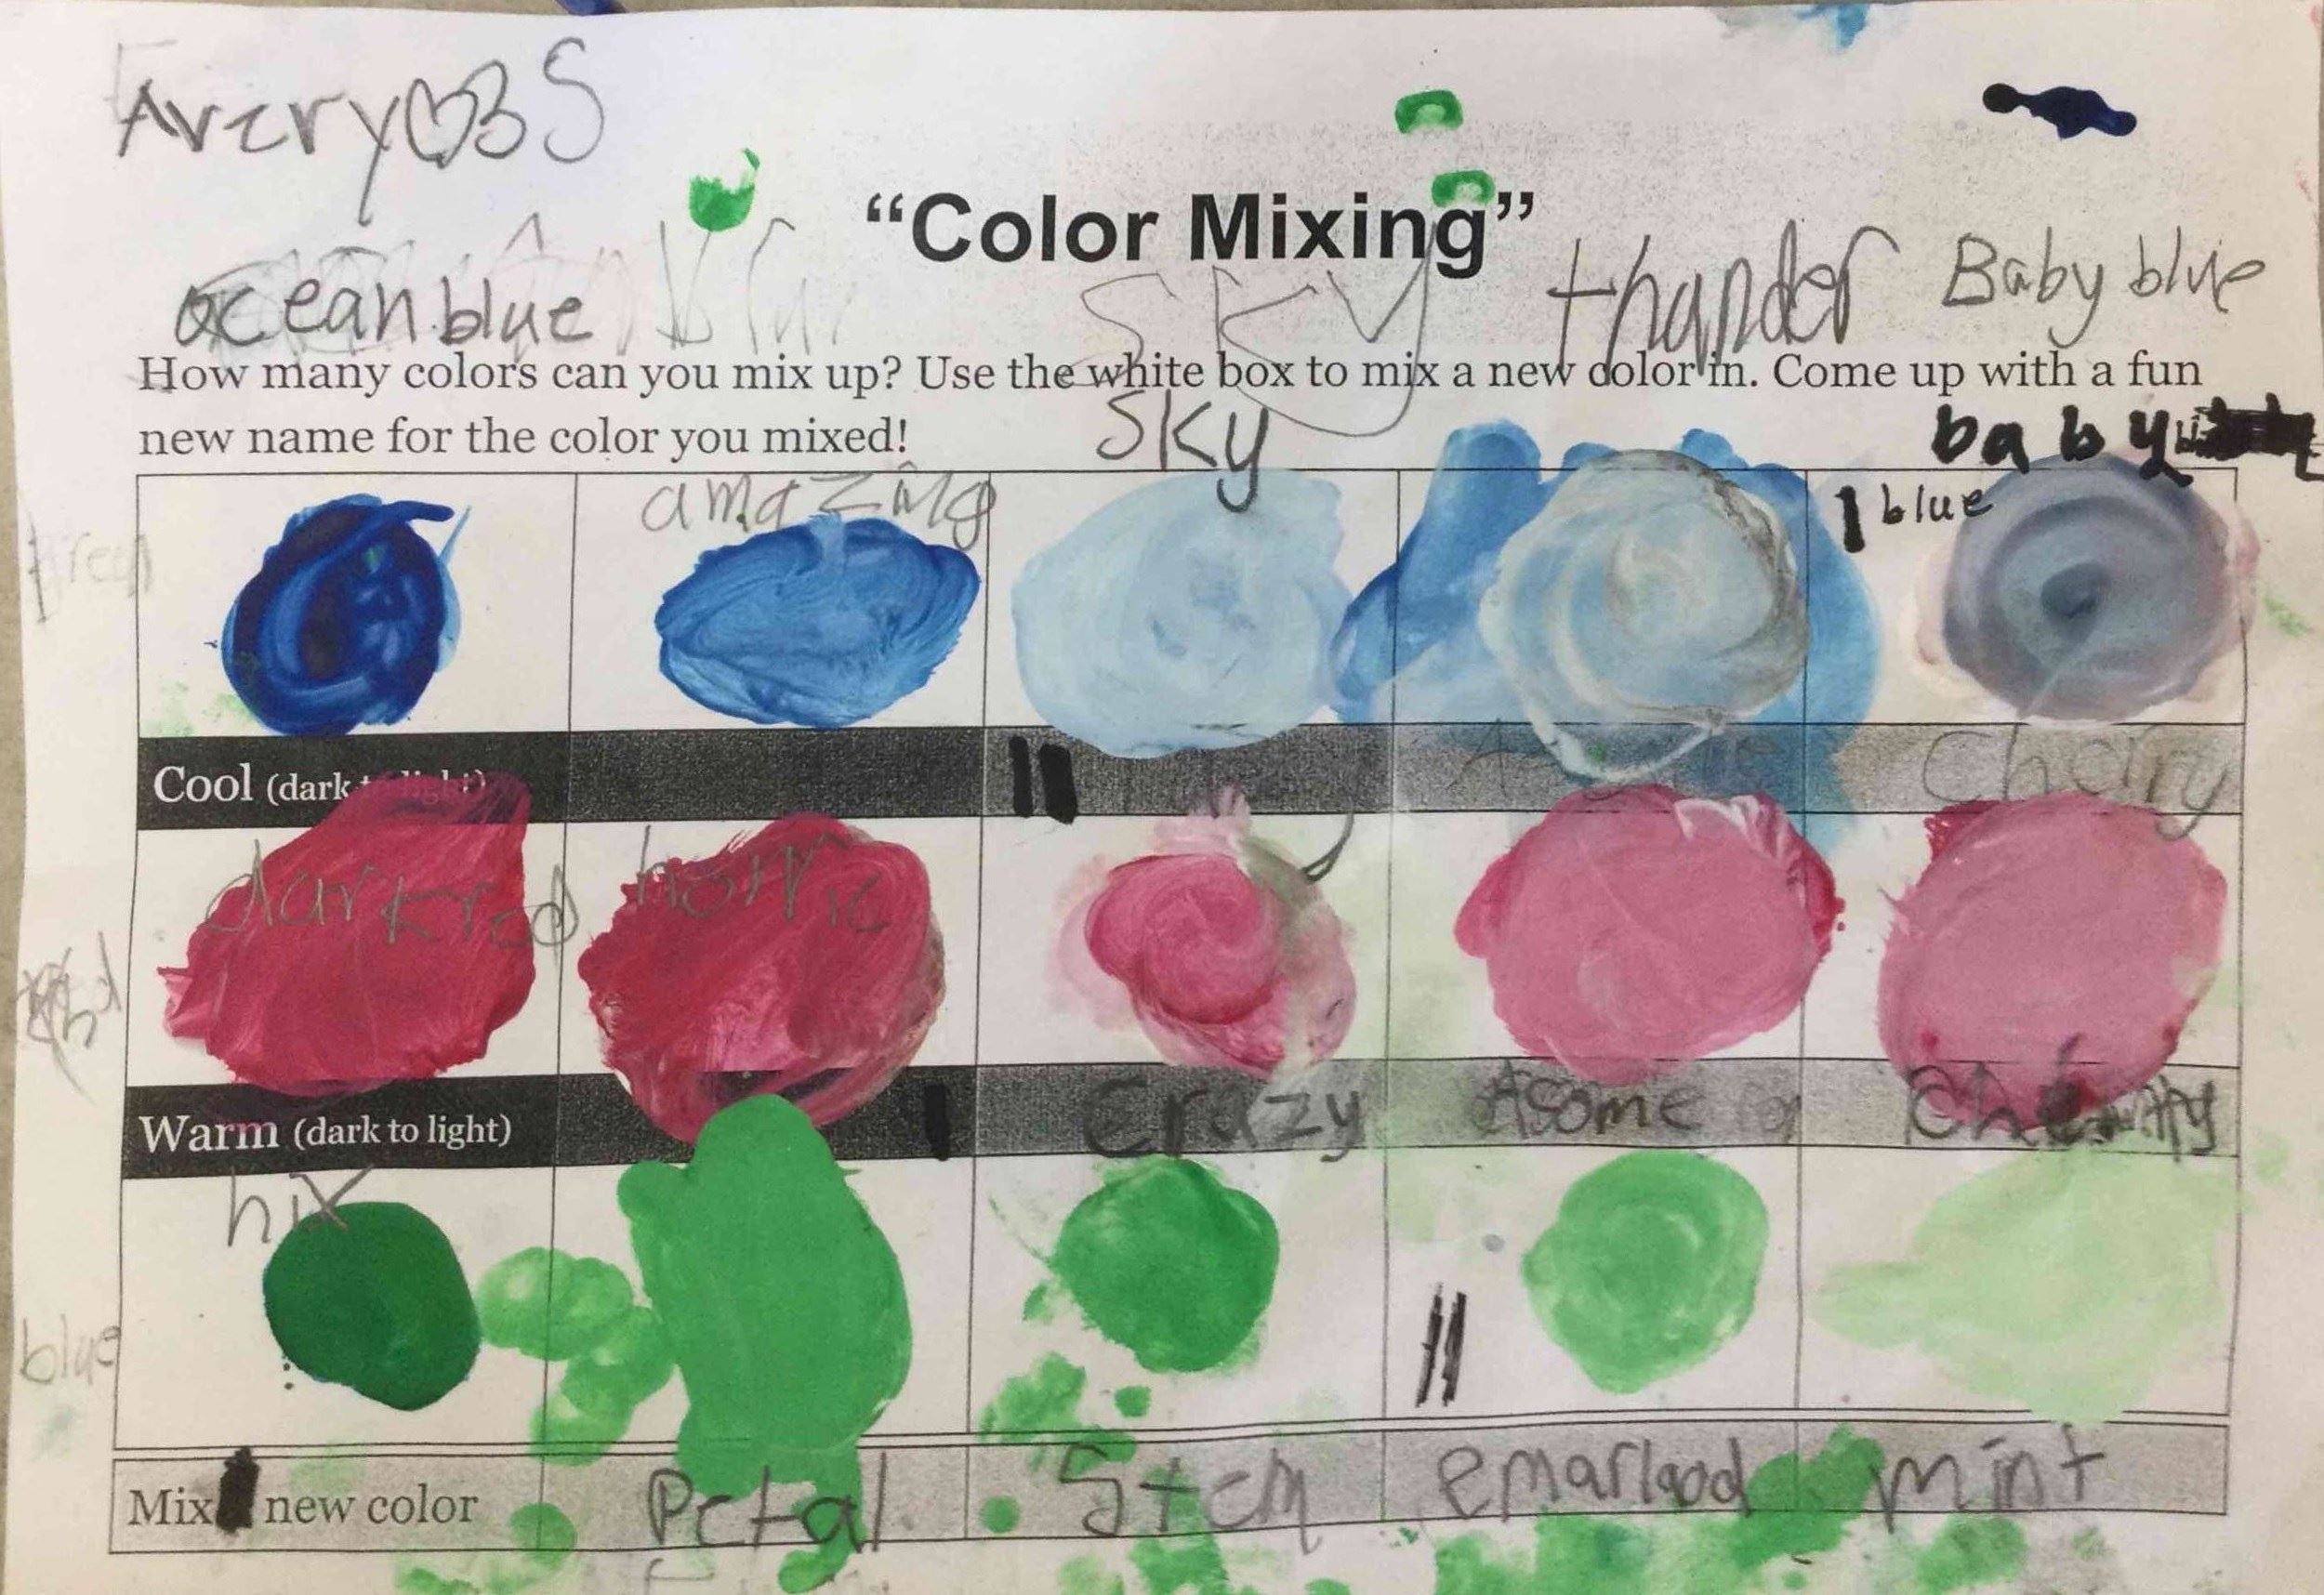 Avery♡BS
“Color Mixing”
ocean blue
sky
thander
Baby blue
How many colors can you mix up? Use the white box to mix a new color in. Come up with a fun
new name for the color you mixed!
sky
baby
amazing
blue
Cool (dark to light)
Cherry
dark red
Warm (dark to light)
Crazy
Asome
Cherry
red
hix
blue
Mix new color
Petal
Stem
emarlaod
mint